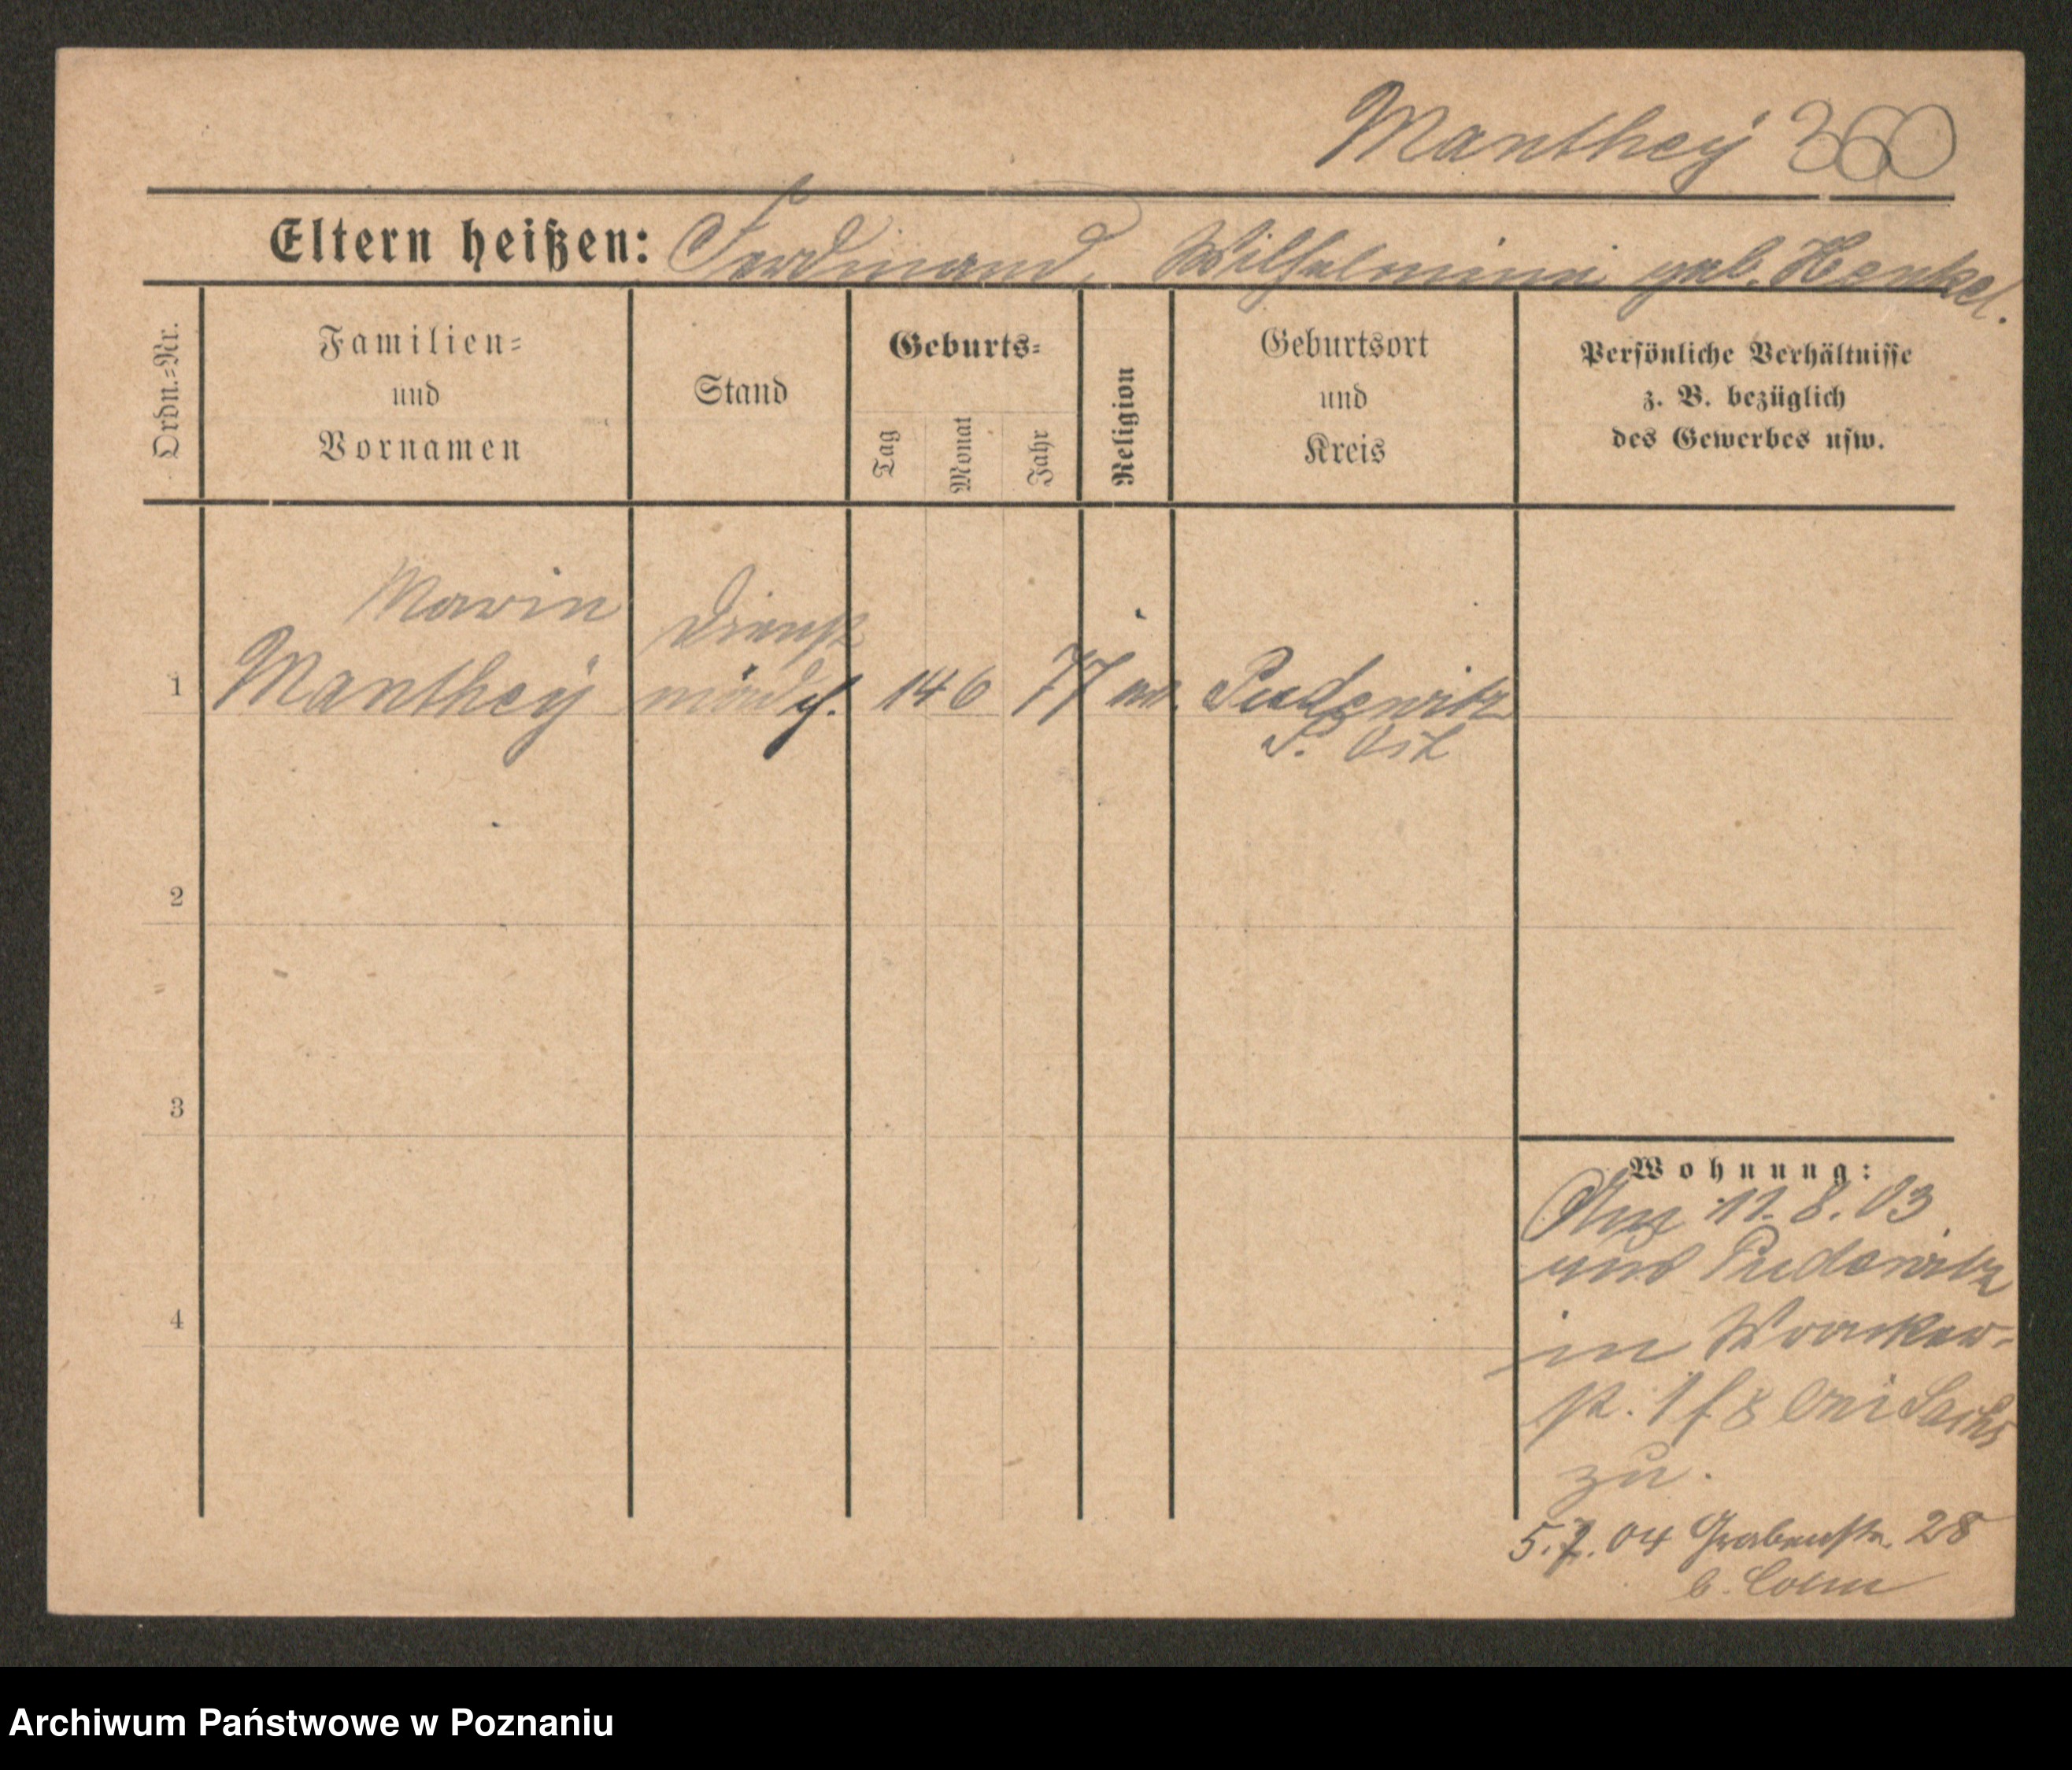 Manthey 360
Eltern heißen: Ferdinand, Wilhelmine geb. Henkel.
Ordn.=Nr.
Familien=
und
Vornamen
Stand
Geburts=
Tag
Monat
Jahr
Religion
Geburtsort
und
Kreis
Persönliche Verhältnisse
z. B. bezüglich
des Gewerbes usw.
Marie Dienst
1 Manthey mädch. 14 6 77 ev. Pudewitz
P. Ost
2
3
4
Wohnung:
11. 8. 03
aus Pudewitz
in Wronker-
st. bei Sachs
zu.
5.7.04 Grabenstr. 28
b. Cohn
Archiwum Państwowe w Poznaniu